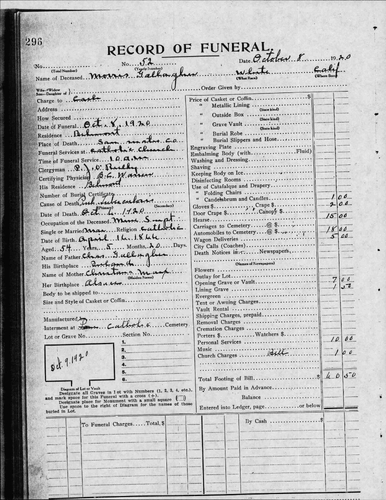 296
RECORD OF FUNERAL
No. No. 52 Date October 8 1920
(Total Number) (Yearly Number)
Name of Deceased Morris Gallagher White Calif
(What Race) (Where Born)
Order Given by
Charge to Cash
Address
How Secured
Date of Funeral Oct. 8, 1920
Residence Belmont
Place of Death San Mateo Co
Funeral Services at Catholic Church
Time of Funeral Service 10 a.m
Clergyman
Certifying Physician
His Residence Belmont
Number of Burial Certificate
Cause of Death
Date of Death Oct 6, 1920
Occupation of the Deceased
Single or Married Religion Catholic
Date of Birth April 16, 1866
Aged 54 Years 5 Months 20 Days
Name of Father Chas. Gallagher
His Birthplace Ireland
Name of Mother Christine
Her Birthplace Alsace
Body to be shipped to
Size and Style of Casket or Coffin
Manufactured by
Interment at Catholic Cemetery
Lot or Grave No. Section No.
1.
2.
3.
4.
5.
6.
Oct 9, 1920
Diagram of Lot or Vault
Designate all Graves in Lot with Numbers (1, 2, 3, etc.,)
and mark space for this Funeral with a cross ( x ).
Designate place for Monument with a small square
Use space to the right of Diagram for the names of those
buried in Lot.
Price of Casket or Coffin
" Metallic Lining
" Outside Box
" Grave Vault
" Burial Robe
" Burial Slippers and Hose
Engraving Plate
Embalming Body (with Fluid)
Washing and Dressing
Shaving
Keeping Body on Ice
Disinfecting Rooms
Use of Catafalque and Drapery
" Folding Chairs
" Candelabrum and Candles 1 00
Gloves Crape 2 00
Door Crape
Hearse 15 00
Carriages to Cemetery
Automobiles to Cemetery 18 00
Wagon Deliveries 5 00
City Calls (Coaches)
Death Notices in Newspapers
(Names of Newspapers)
Flowers
Outlay for Lot
Opening Grave or Vault 7 00
Lining Grave 50
Evergreen
Tent or Awning Charges
Vault Rental
Shipping Charges, prepaid
Removal Charges
Cremation Charges
Porters $ Watchers $
Personal Services 10 00
Music
Church Charges Bell 1 00
Total Footing of Bill 60 50
By Amount Paid in Advance
Balance
Entered into Ledger, page or below.
To Funeral Charges Total, $
By Cash $